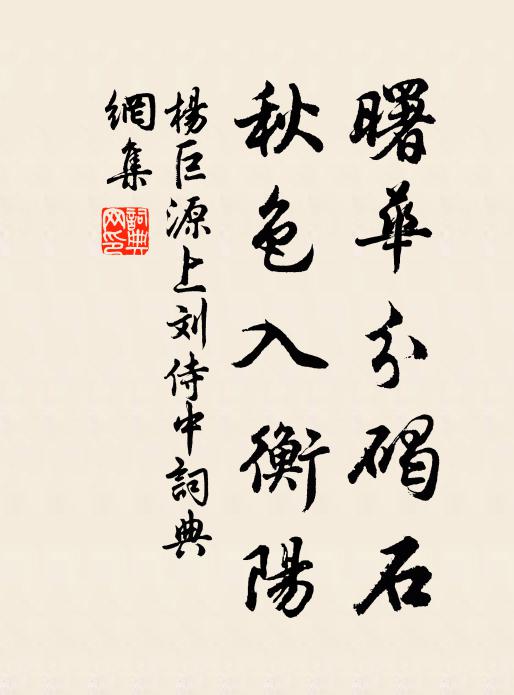 曙華分碣石
秋色入衡陽
楊巨源上刘侍中詞典
網集
詞典网印